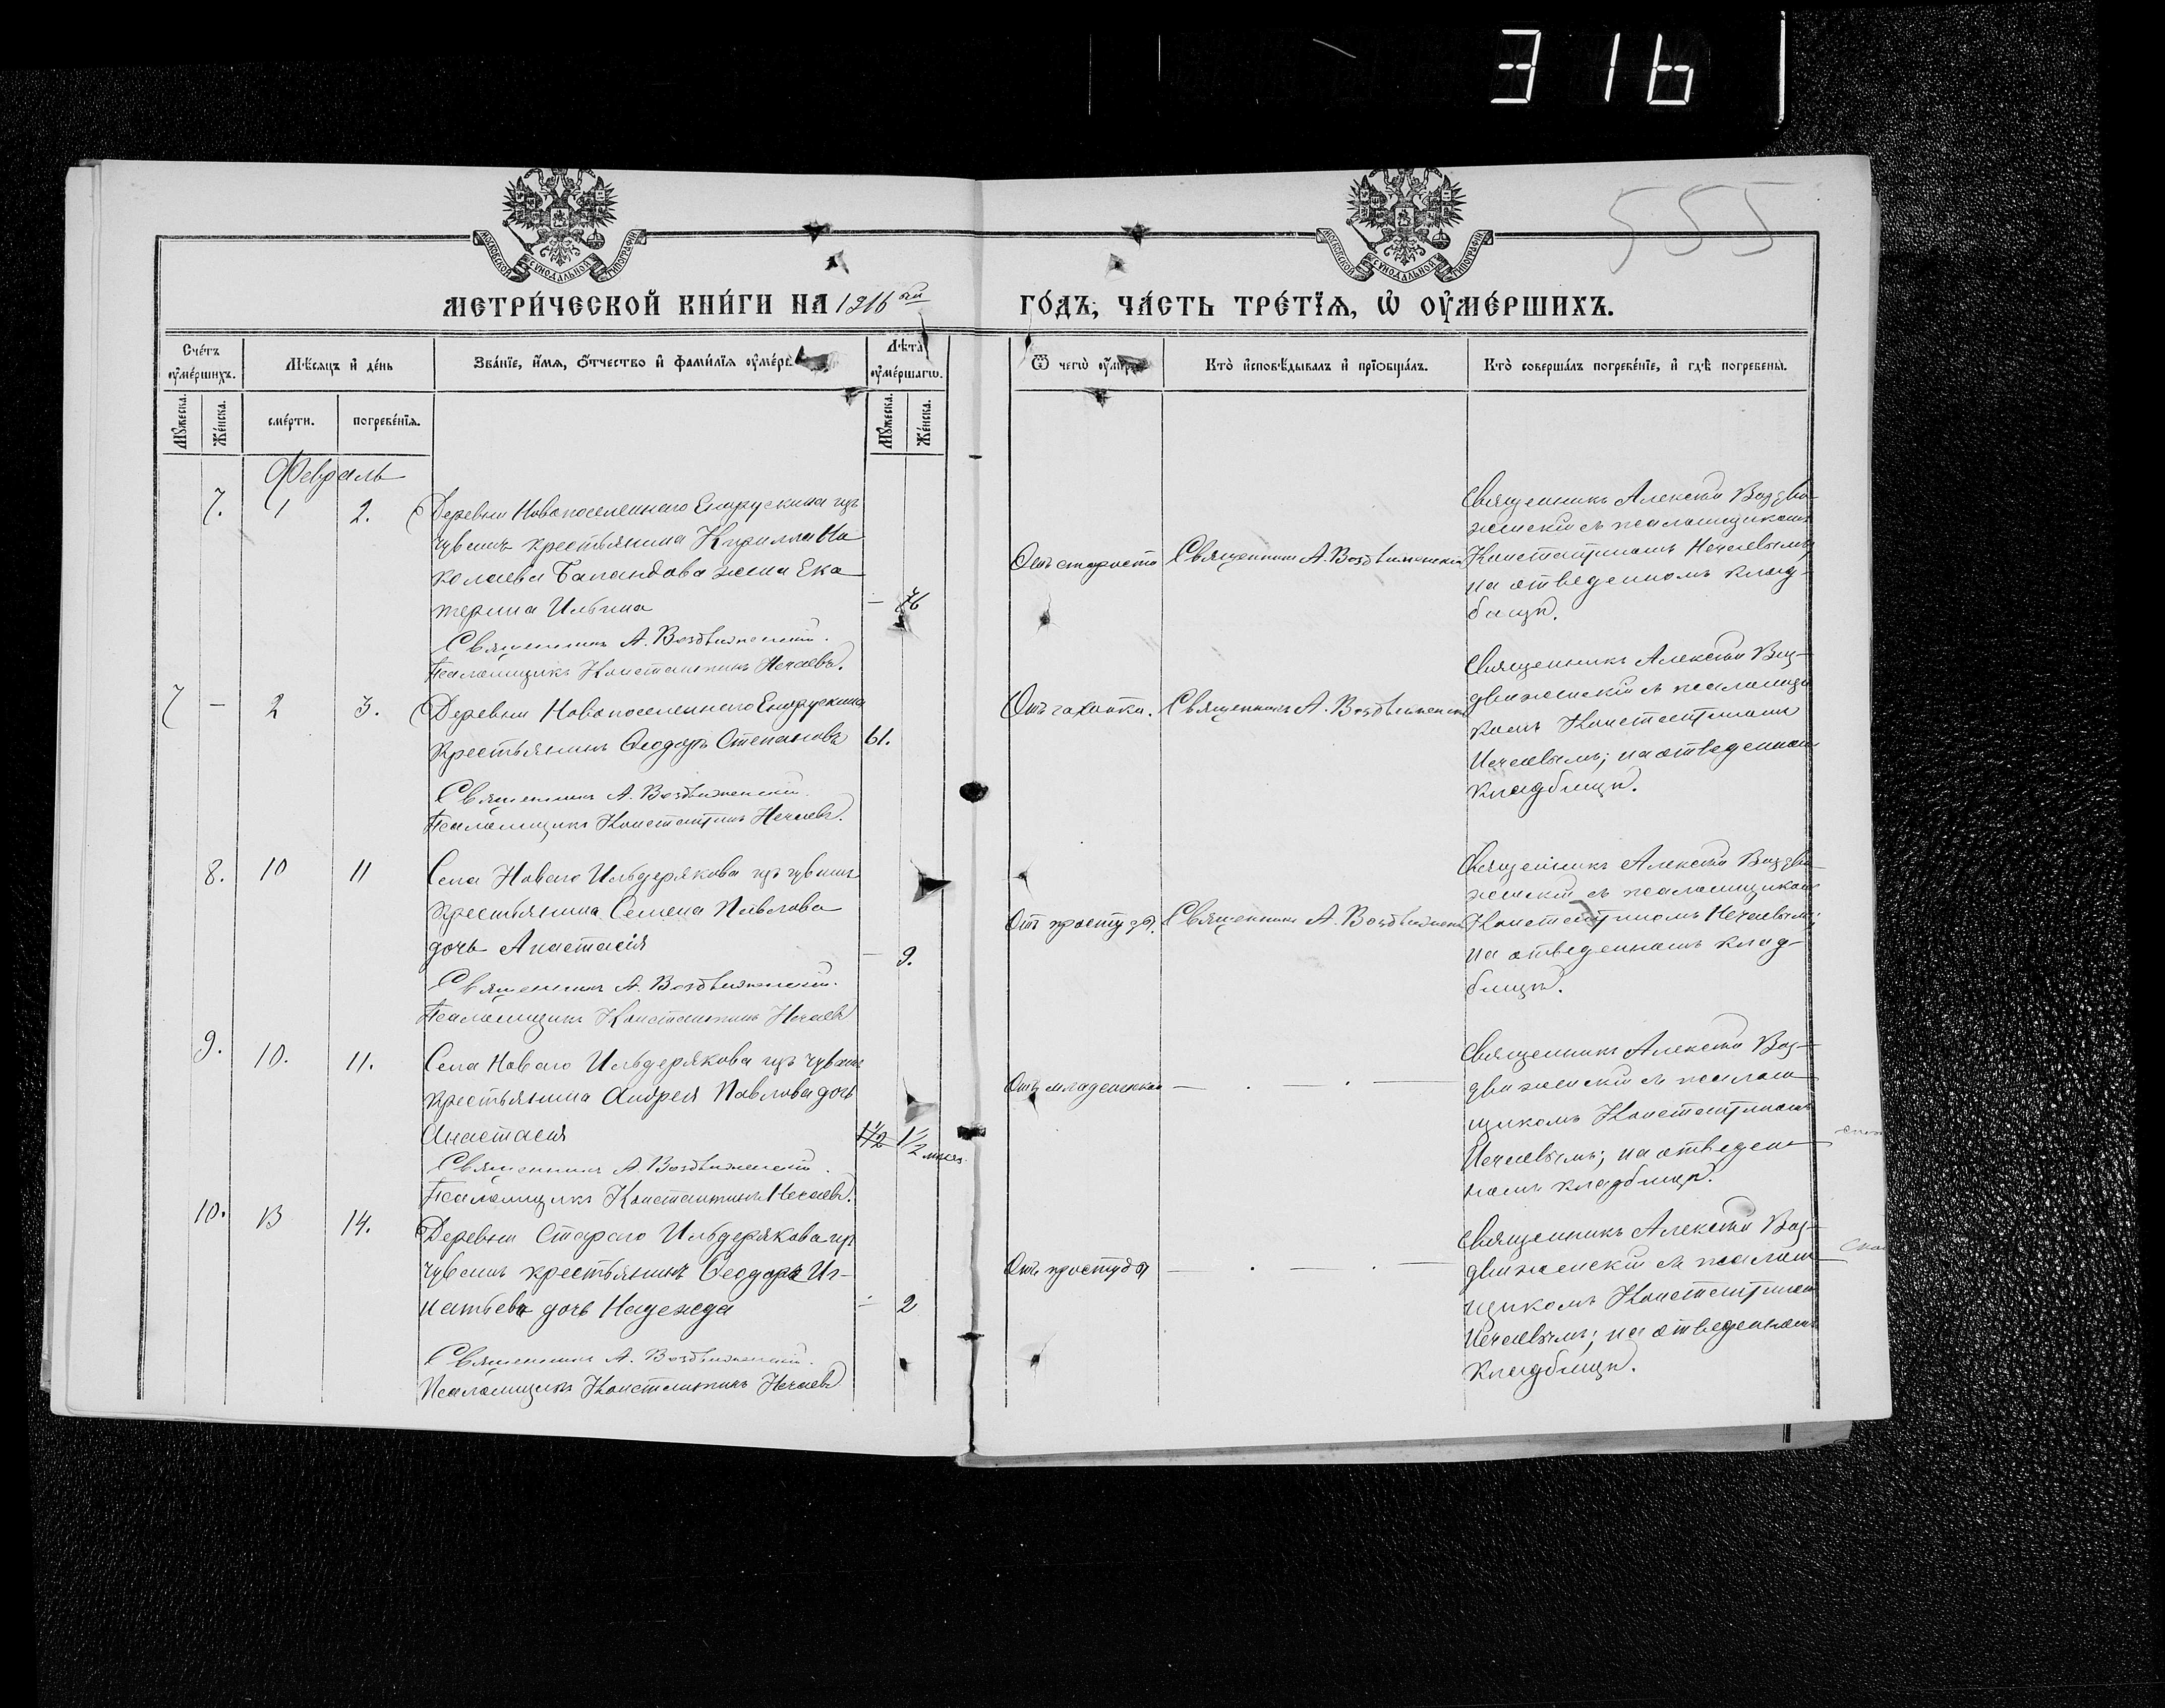 316
555
МОСКОВСКОЙ СѴНОДАЛЬНОЙ ТИПОГРАФІИ
МОСКОВСКОЙ СѴНОДАЛЬНОЙ ТИПОГРАФІИ
МЕТРИ́ЧЕСКОЙ КНИ́ГИ НА 1916 ый ГО́ДЪ, ЧА́СТЬ ТРЕ́ТЇѦ, Ѡ҆ ОУ҆МЕ́РШИХЪ.
Сче́тъ оу҆ме́ршихъ.
Мѣ́сяцъ и҆ де́нь
Зва́нїе, и҆́мя, ѻ҆́тчество и҆ фами́лїя
Лѣ́та оу҆ме́ршагѡ.
Ѿ чегѡ̀
Кто̀ и҆сповѣ́дывалъ и҆ прїѡбща́лъ.
Кто̀ соверша́лъ погребе́нїе, и҆ гдѣ̀ погребены̀.
Мꙋ́жеска.
Же́нска.
сме́рти.
погребе́нїя.
Мꙋ́жеска.
Же́нска.
Февраль
7. 1 2. Деревни Новопоселеннаго Енорускина изъ
чувашъ крестьянина Кирилла Ни
колаева Баландова жена Ека
терина Ильина — 76
Священникъ А. Воздвиженскій.
Псаломщикъ Константинъ Нечаевъ.
Отъ старости Священникъ А. Воздвиженскій
Священникъ Алексѣй Воздви-
женскій съ псаломщикомъ
Константиномъ Нечаевымъ;
на отведенномъ клад-
бищѣ.
7 — 2 3. Деревни Новопоселеннаго Енорускина
крестьянинъ Ѳеодоръ Степановъ 61.
Священникъ А. Воздвиженскій.
Псаломщикъ Константинъ Нечаевъ.
Священникъ А. Воздвиженскій
Священникъ Алексѣй Воз-
движенскій съ псаломщи
комъ Константиномъ
Нечаевымъ; на отведенномъ
кладбищѣ.
8. 10 11 Села Новаго Ильдерякова изъ чувашъ
крестьянина Семена Павлова
дочь Анастасія — 9.
Священникъ А. Воздвиженскій.
Псаломщикъ Константинъ Нечаевъ
Отъ простуды. Священникъ А. Воздвиженскій
Священникъ Алексѣй Воздви-
женскій съ псаломщикомъ
Константиномъ Нечаевымъ;
на отведенномъ клад-
бищѣ.
9. 10. 11. Села Новаго Ильдерякова изъ чувашъ
крестьянина Андрея Павлова дочь
Анастасія 1½ 1½ мѣсяц.
Священникъ А. Воздвиженскій.
Псаломщикъ Константинъ Нечаевъ.
Отъ младенческой — . — . —
Священникъ Алексѣй Воз-
движенскій съ псалом
щикомъ Константиномъ
Нечаевымъ; на отведен-
номъ кладбищѣ.
10. 13 14. Деревни Стараго Ильдерякова изъ
чувашъ крестьянинъ Ѳеодора Иг-
натьева дочь Надежда — 2
Священникъ А. Воздвиженскій.
Псаломщикъ Константинъ Нечаевъ
Отъ простуды — . — . —
Священникъ Алексѣй Воз-
движенскій съ псалом
щикомъ Константиномъ
Нечаевымъ; на отведенномъ
кладбищѣ.